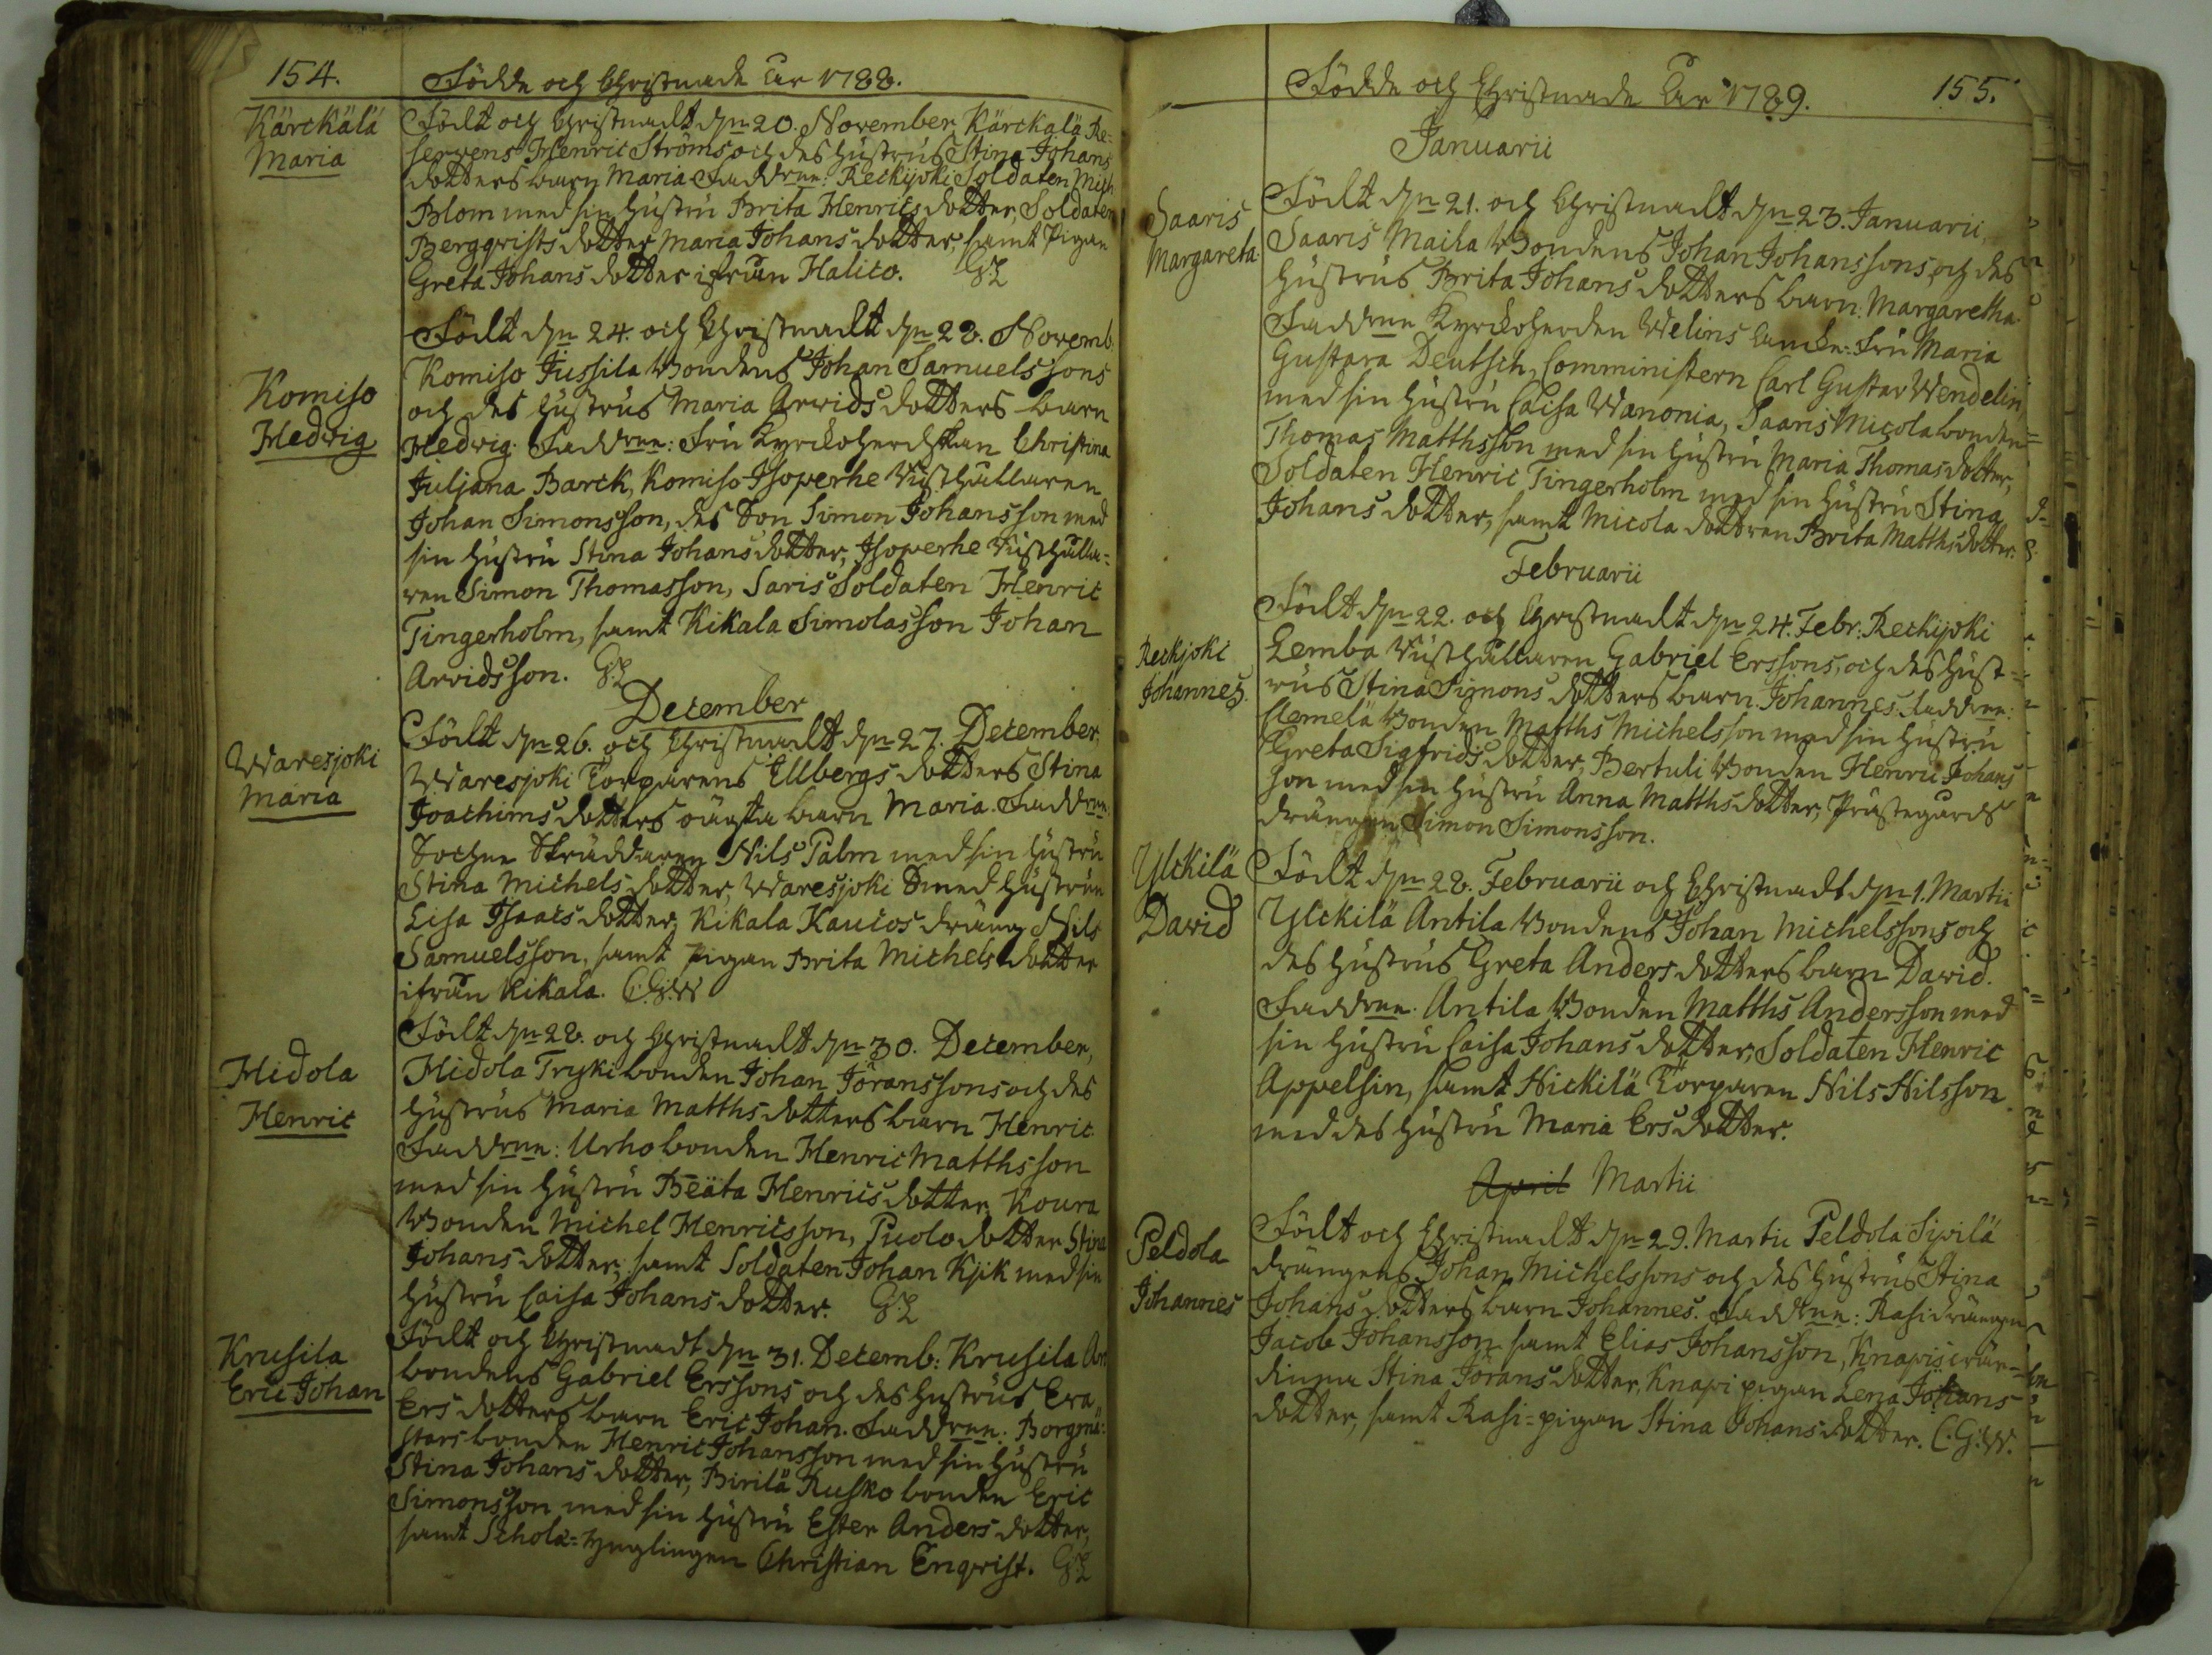 154.
Födde och Christnade År 1788.
Kärckälä
Maria
Födt och Christnadt dn 20. November, Kärckälä Re=
servens Henric Ströms, och des hustrus Stina Johans
dotters barn Maria. Faddrne: Reckijoki Soldaten Mich
Blom med sin hustru Brita Henrics dotter, Soldaten
Bergqvists dotter Maria Johans dotter, samt Pigan
Greta Johans dotter ifrån Halico. G:L
Komiso
Hedvig
Födt dn 24. och Christnadt dn 28. Novemb.
Komiso Jussila Bondens Johan Samuelssons
och des hustrus Maria Arvids dotters barn
Hedvig. Faddrne: Fru Kyrckoherdskan Christina
Juljana Barck, Komiso Isoperhe Rusthållaren
Johan Simonsson, des Son Simon Johansson med
sin hustru Stina Johansdotter, Isoperhe Rusthålla=
ren Simon Thomasson, Saris Soldaten Henric
Tingerholm, samt Kikala Simolasson Johan
Arvidsson. G:L
December
Waresjoki
Maria
Födt dn 26. och Christnadt dn 27. December,
Waresjoki Torparens Ellbergs dotters Stina
Joachims dotters oägta barn Maria. Faddrne.
Sochne Skräddaren Nils Palm med sin hustru
Stina Michels dotter, Waresjoki Smed hustrun
Lisa Isaacs dotter, Kikala Kaucos dräng Nils
Samuelsson, samt Pigan Brita Michels dotter
ifrån Kikala. C:G:W
Hidola
Henric
Födt dn 28. och Christnadt dn 30. December,
Hidola Tryki bonden Johan Jöranssons och des
hustrus Maria Matths dotters barn Henric.
Faddrne: Urho bonden Henric Matthsson
med sin hustru Beäta Henrics dotter, Koura
Bonden Michel Henricsson, Puolo dotter Stina
Johans dotter, samt Soldaten Johan Kjik med sin
hustru Caisa Johans dotter. G:L
Krusila
Eric Johan
Födt och Christnadt dn 31. Decemb: Krusila
bondens Gabriel Erssons och des hustrus Eva
Ers dotters barn Eric Johan. Faddrne: Borgmä=
stars bonden Henric Johansson med sin hustru
Stina Johans dotter, Pirilä Rusko bonden Eric
Simonsson med sin hustru Ester Anders dotter,
samt Schola=Ynglingen Christian Enqvist. G:L
Födde och Christnade År 1789.
155.
Januarii
Saaris
Margareta
Födt dn 21. och Christnadt dn 23. Januarii,
Saaris Maila Bondens Johan Johanssons, och des
hustrus Brita Johans dotters barn: Margaretha.
Faddrne Kyrckoherden Welins Encke=Fru Maria
Gustava Deutsch, Comministern Carl Gustav Wendelin
med sin hustru Caisa Wanonia, Saaris Micola bonden
Thomas Matthsson med sin hustru Maria Thomas dotter,
Soldaten Henric Tingerholm med sin hustru Stina
Johans dotter, samt Micola dottren Brita Matthsdotter.
Februarii
Reckjoki
Johannes.
Födt dn 22. och Christnadt dn 24. Febr: Reckijoki
Lemba Rusthållaren Gabriel Erssons, och des hust=
rus Stina Simons dotters barn. Johannes. Faddrne:
Hemelä Bonden Matths Michelsson med sin hustru
Greta Sigfrids dotter, Bertuli Bonden Henric Johans
son med sin hustru Anna Matths dotter, Prästegårds
drängen Simon Simonsson.
Ylckilä
David
Födt dn 28. Februarii och Christnadt dn 1. Martii
Ylckilä Antila Bondens Johan Michelssons och
des hustrus Greta Anders dotters barn David.
Faddrne. Antila Bonden Matths Andersson med
sin hustru Caisa Johans dotter, Soldaten Henric
Appelsin, samt Hickilä Torparen Nils Nilsson
med des hustru Maria Ersdotter.
April Martii
Peldola
Johannes
Födt och Christnadt dn 29. Martii Peldola Sipilä
drängens Johan Michelssons och des hustrus Stina
Johans dotters barn Johannes. Faddrne: Rasi drängen
Jacob Johansson samt Elias Johansson, Knapis
Stina Jörans dotter, Knapi pigan Lena Johans
dotter, samt Rasi=pigan Stina Johansdotter. C:G:W.